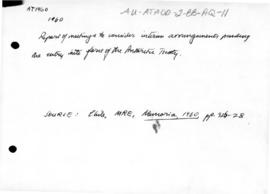 AT1960
1960
AU-ATADD-2-BB-AQ-11
Report of meetings to consider interim arrangements pending
the entry into force of the Antarctic Treaty.
SOURCE: Chile, MRE, Memoria, 1960, pp. 326-28